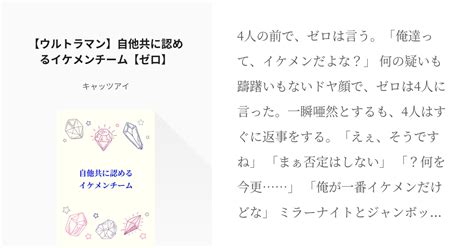 【ウルトラマン】自他共に認め
るイケメンチーム【ゼロ】
キャッツアイ
自他共に認める
イケメンチーム
4人の前で、ゼロは言う。「俺達っ
て、イケメンだよな？」 何の疑いも
躊躇いもないドヤ顔で、ゼロは4人に
言った。一瞬唖然とするも、4人はす
ぐに返事をする。「えぇ、そうです
ね」 「まぁ否定はしない」 「？何を
今更……」 「俺が一番イケメンだけ
どな」 ミラーナイトとジャンボッ…